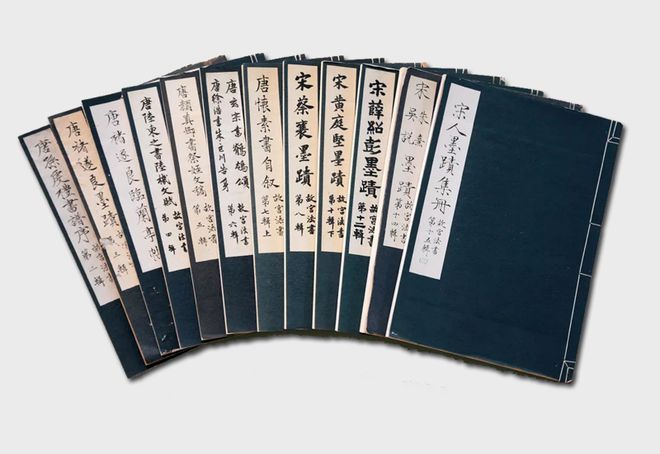 唐孫虔禮書譜序
第二輯
唐褚遂良墨蹟
三輯
唐褚遂良臨蘭亭
唐陸柬之書陸機文賦
故宮法書
第四輯
唐顏真卿書祭姪文稿
故宮法書
第五輯
唐玄宗書鶺鴒頌
唐徐浩書朱巨川告身
故宮法書
第六輯
唐懷素書自叙
故宮法書
第七輯上
宋蔡襄墨蹟
故宮法書
第八輯
宋黃庭堅墨蹟
故宮法書
第十輯下
宋薛紹彭墨蹟
故宮法書
第十二輯
宋朱熹
吳說墨蹟
故宮法書
第十四輯
宋人墨蹟集冊
故宮法書
第十五輯